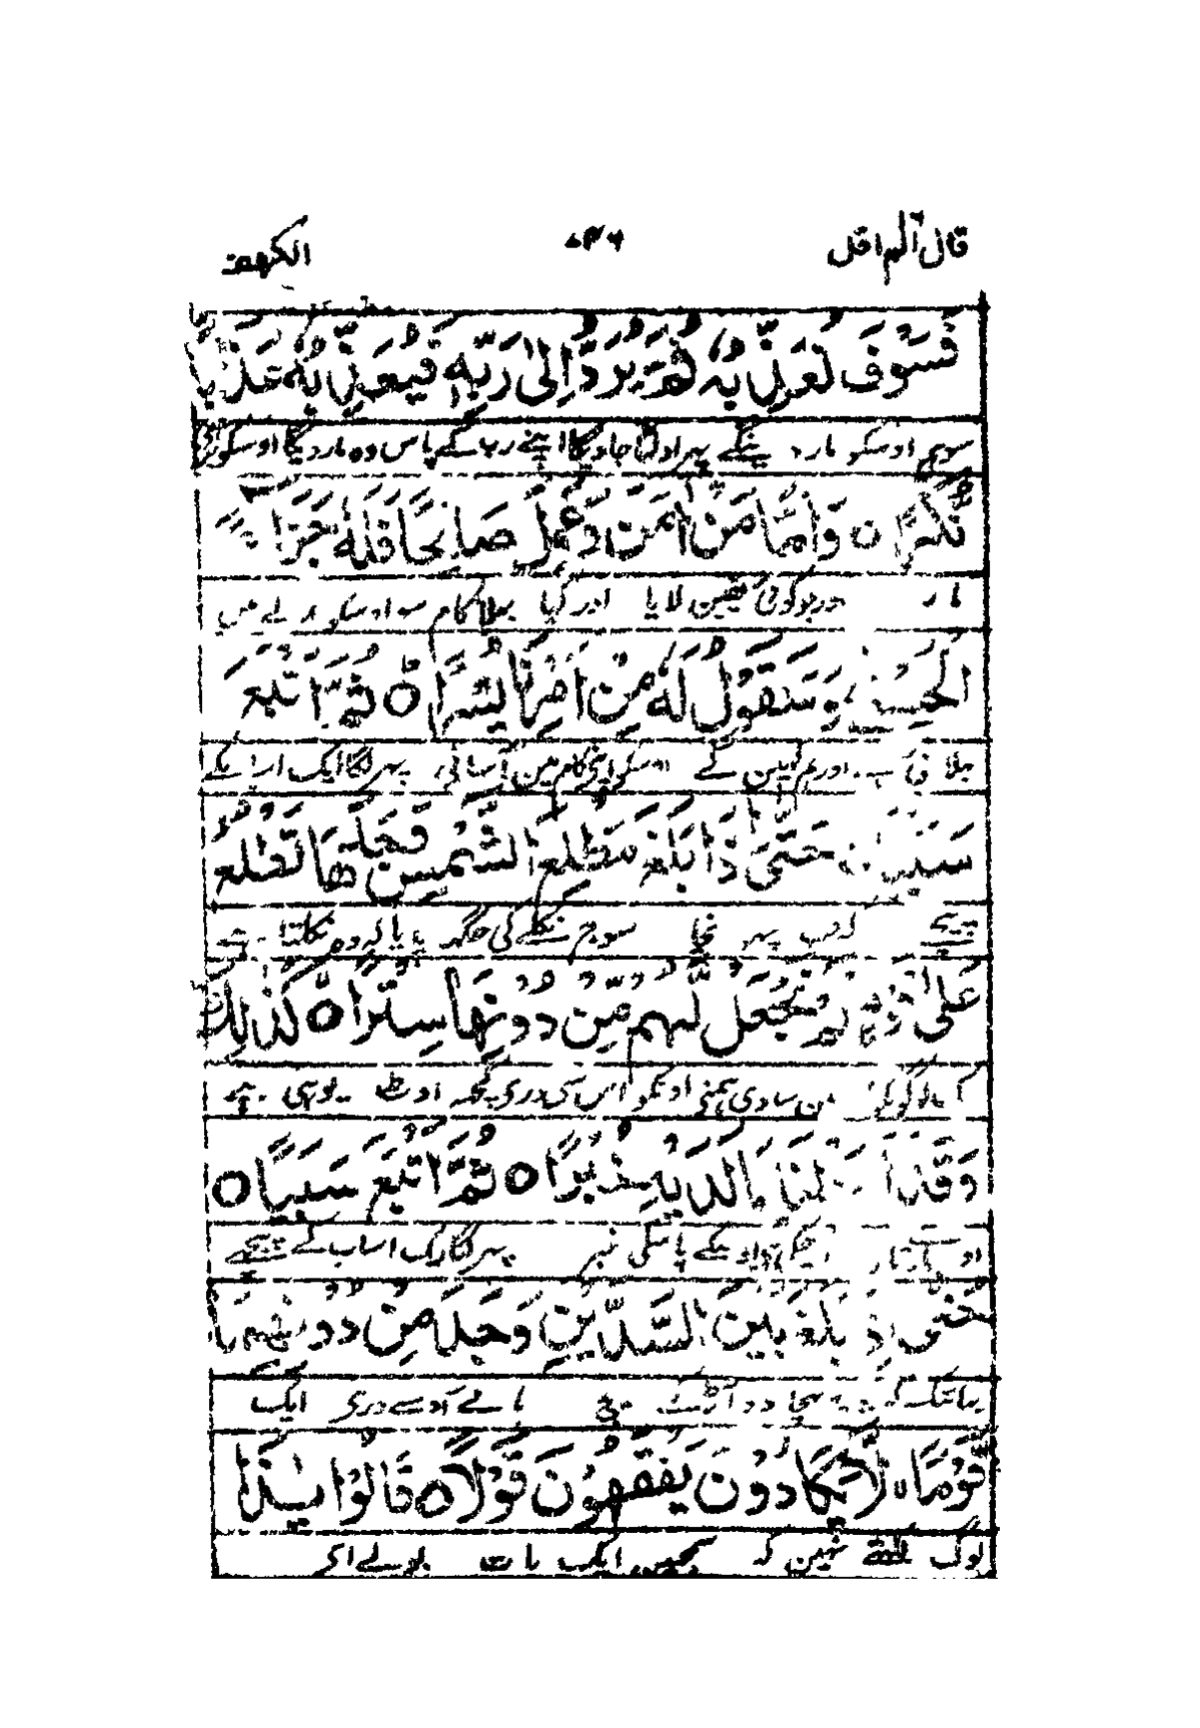 قال الم اقل ۴۳۶ الكهف
فَسَوْفَ نُعَذِّبُهُ ثُمَّ يُرَدُّ اِلىٰ رَبِّهٖ فَيُعَذِّبُهٗ عَذَابًا
سو ہم اوسکو مار دینگے پہر اولٹا جاویگا اپنے رب کے پاس وہ مار دیگا اوسکو بری
نُّكْرًا ○ وَاَمَّا مَنْ اٰمَنَ وَعَمِلَ صَالِحًا فَلَهٗ جَزَآءَ
مار اور جو کوئی یقین لایا اور کیا بھلا کام سو اوسکو بدلے میں
الْحُسْنىٰ وَسَنَقُوْلُ لَهٗ مِنْ اَمْرِنَا يُسْرًا ○ ثُمَّ اَتْبَعَ
بھلائی ہے اور ہم کہین گے اوسکو اپنے کام مین آسانی پہر لگا ایک
سَبَبًا ○ حَتّىٰ اِذَا بَلَغَ مَطْلِعَ الشَّمْسِ وَجَدَهَا تَطْلُعُ
پیچھے جب پہونچا سورج نکلنے کی جگہ پایا کہ وہ نکلتا ہے
عَلىٰ قَوْمٍ لَّمْ نَجْعَلْ لَّهُمْ مِّنْ دُوْنِهَا سِتْرًا ○ كَذٰلِكَ
ایک لوگون پر نہین بنادی ہمنے اونکو اس سے وری کچھ اوٹ یوہی ہے
وَقَدْ اَحَطْنَا بِمَا لَدَيْهِ خُبْرًا ○ ثُمَّ اَتْبَعَ سَبَبًا ○
اوسکے پاس کی خبر پہر لگا ایک اسباب کے پیچھے
حَتّىٰ اِذَا بَلَغَ بَيْنَ السَّدَّيْنِ وَجَدَ مِنْ دُوْنِهِمَا
یہانتک کہ جب پہونچا دو آڑ کے بیچ پائے اون سے وری ایک
قَوْمًا لَّا يَكَادُوْنَ يَفْقَهُوْنَ قَوْلًا ○ قَالُوْا يٰذَا
لوگ لگتے نہین کہ سمجھین ایک بات بولے اے